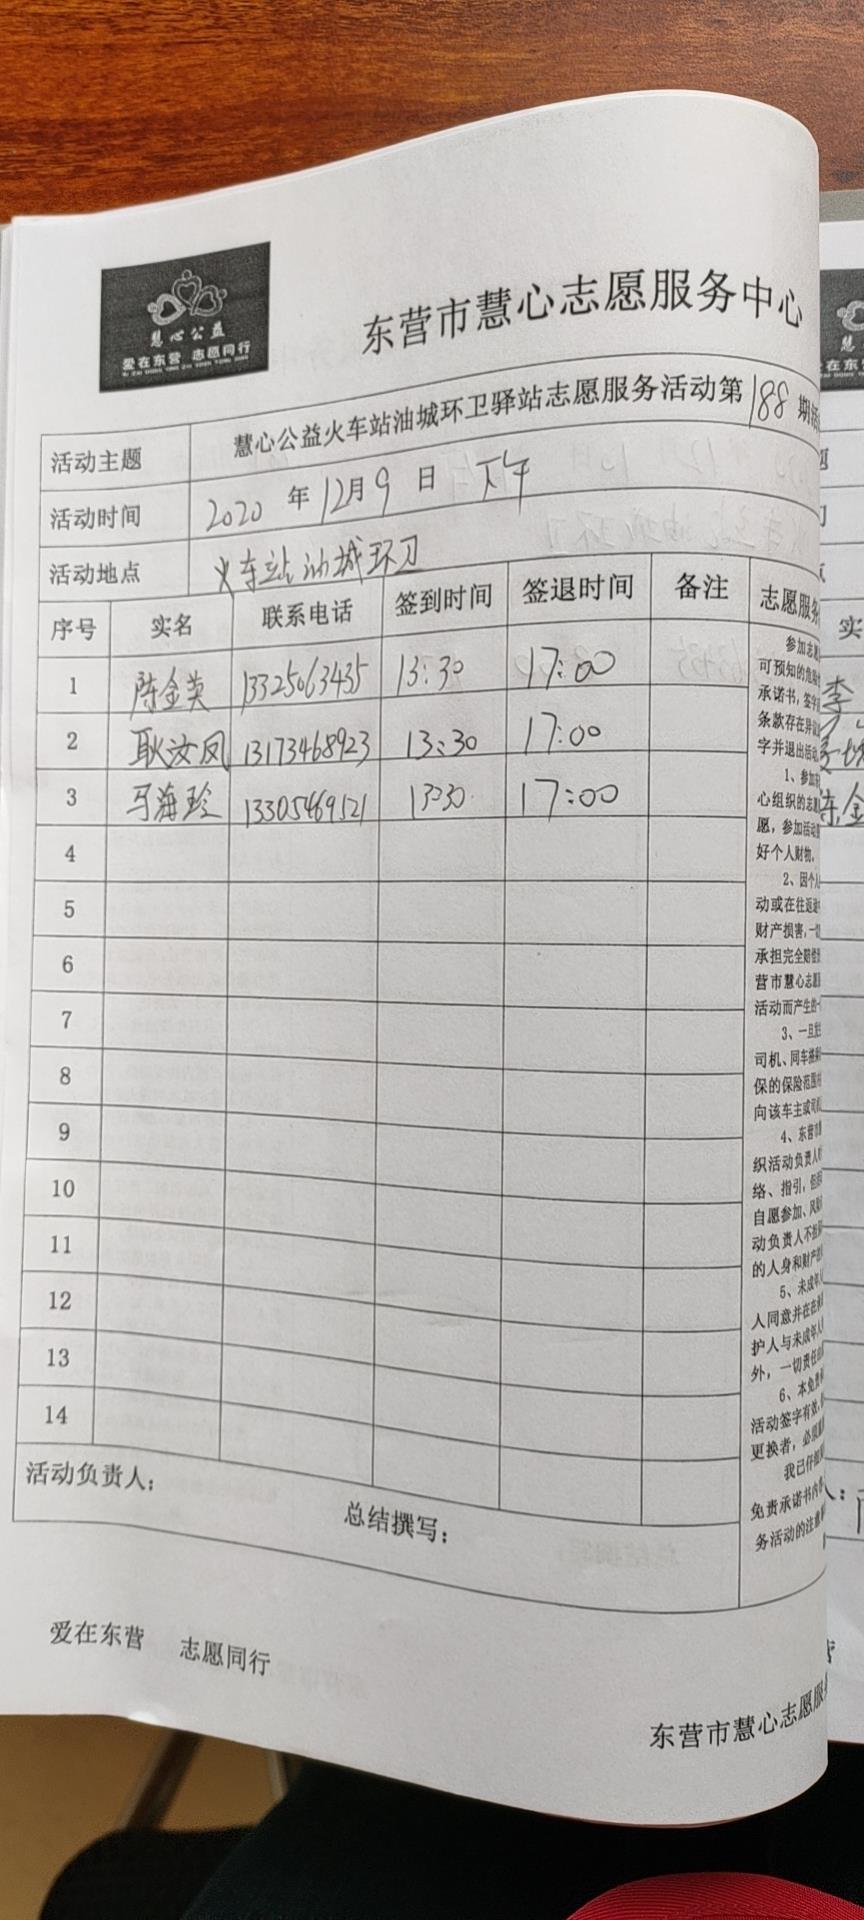 慧心公益
爱在东营 志愿同行
东营市慧心志愿服务中心
活动主题 慧心公益火车站油城环卫驿站志愿服务活动第188期活
活动时间 2020年12月9日 下午
活动地点 火车站油城环卫
序号 实名 联系电话 签到时间 签退时间 备注 志愿服务
1 陈金英 13325063435 13:30 17:00
2 耿汝凤 13173468923 13:30 17:00
3 马海玲 13305469521 13:30 17:00
4
5
6
7
8
9
10
11
12
13
14
参加志愿
可预知的危险
承诺书，签字
条款存在异议
字并退出活动。
1、参加
心组织的志愿
愿，参加活动
好个人财物。
2、因个人
动或在往返途
财产损害，一切
承担完全赔偿
营市慧心志愿
活动而产生的一
3、一旦发
司机、同车搭乘
保的保险范围
向该车主或司机
4、东营市
织活动负责人
络、指引，但
自愿参加、风险
动负责人不担
的人身和财产
5、未成年
人同意并在在
护人与未成年人
外，一切责任由
6、本免责
活动签字有效，
更换者，必须重
我已仔细
免责承诺书内
务活动的注意
活动负责人：
总结撰写：
爱在东营 志愿同行
东营市慧心志愿服
爱在东
实
李
陈金
人：